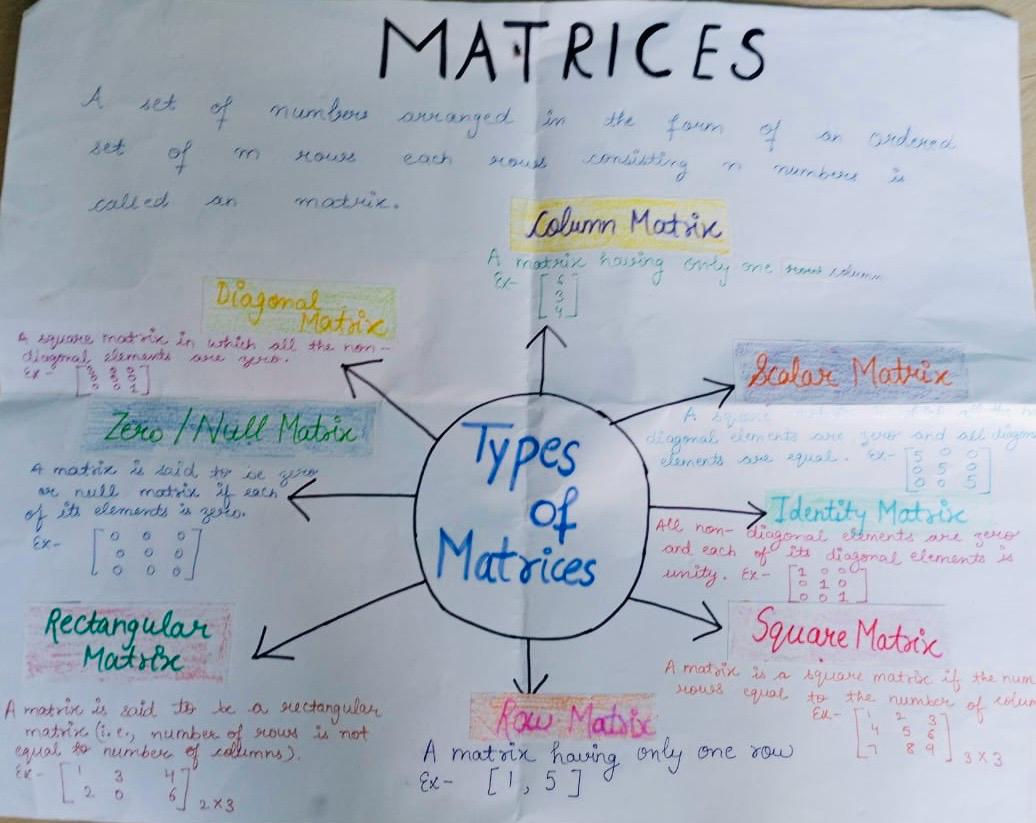 MATRICES
A set of numbers arranged in the form of an ordered
set of m rows each rows consisting n numbers is
called an matrix.
Column Matrix
A matrix having only one column
Ex-
3
4
Diagonal
Matrix
A square matrix in which all the non-
diagonal elements are zero.
Ex-
0 0 1
Scalar Matrix
A square
diagonal elements are zero and all diagon
elements are equal. Ex- [5 0 0
0 5 0
0 0 5]
Zero / Null Matrix
A matrix is said to be zero
or null matrix if each
of its elements is zero.
Ex- [0 0 0
0 0 0
0 0 0]
Types
of
Matrices
Identity Matrix
All non-diagonal elements are zero
and each of its diagonal elements is
unity. Ex- [1 0 0
0 1 0
0 0 1]
Rectangular
Matrix
A matrix is said to be a rectangular
matrix (i.e., number of rows is not
equal to number of columns).
Ex- [1 3 4
2 0 6] 2×3
Square Matrix
A matrix is a square matrix if the num
rows equal to the number of colum
Ex- [1 2 3
4 5 6
7 8 9] 3×3
Row Matrix
A matrix having only one row
Ex- [1, 5]